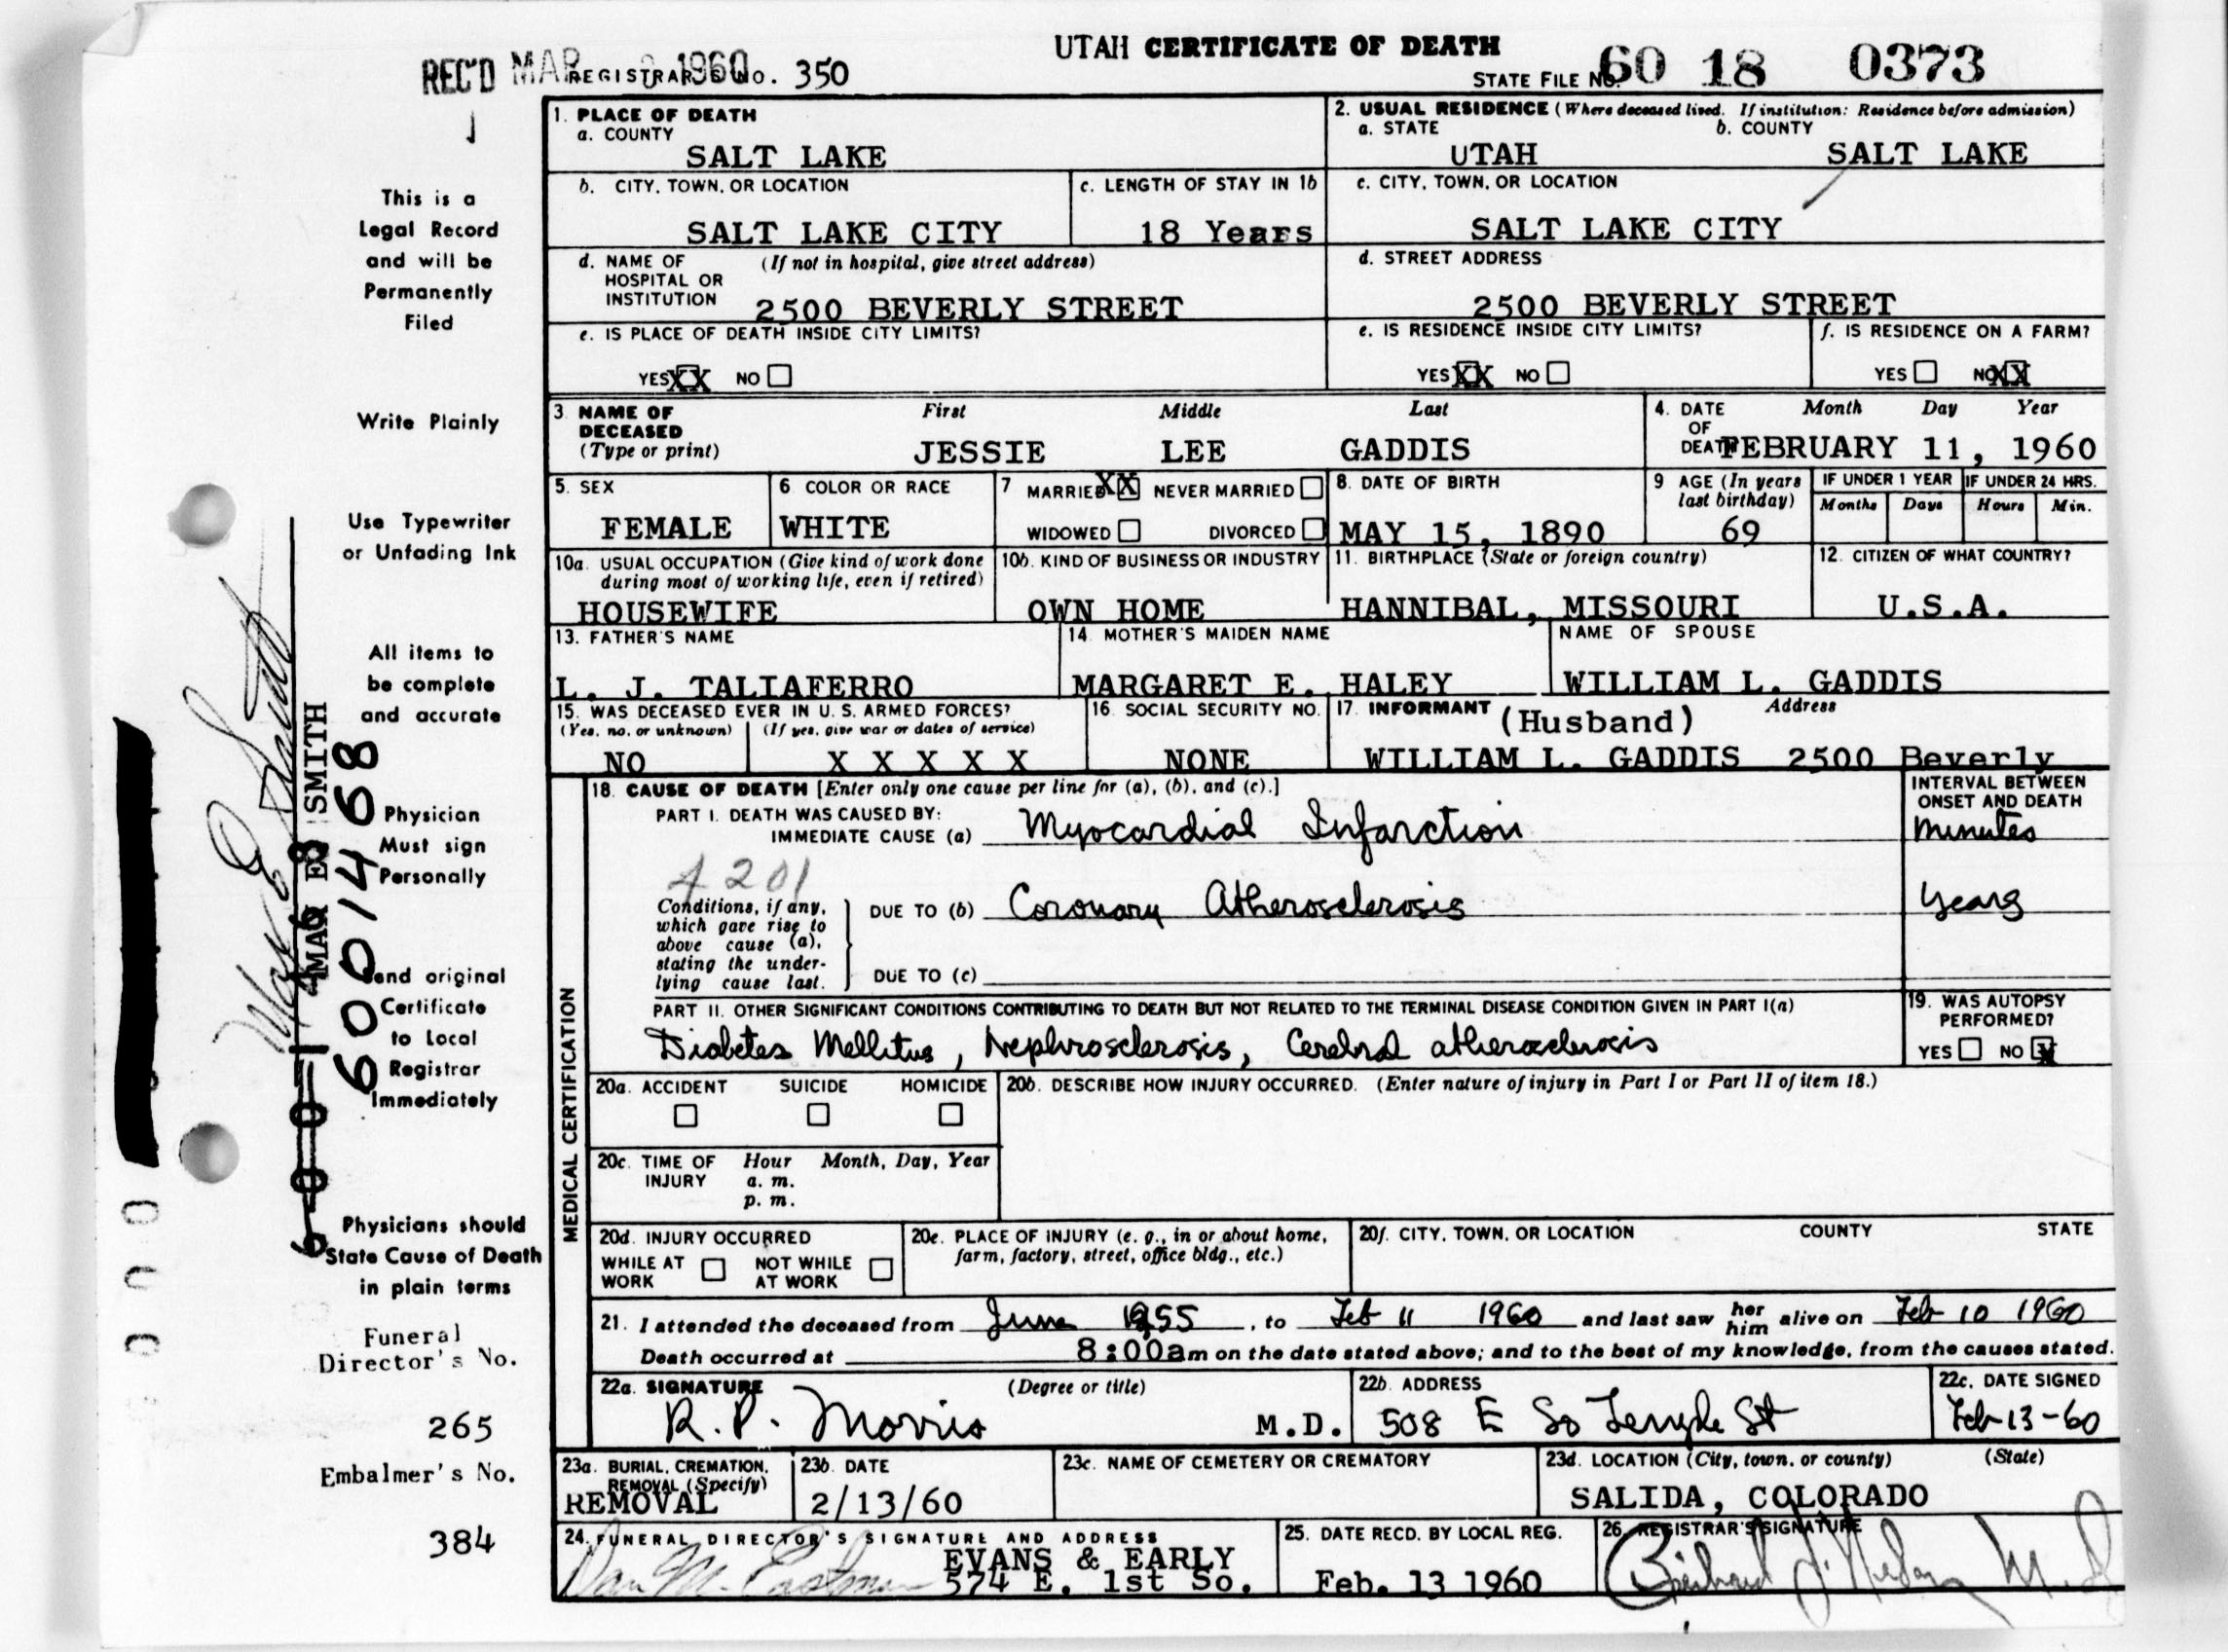 UTAH CERTIFICATE OF DEATH
REC'D MAR 8 1960 REGISTRAR'S No. 350
STATE FILE No. 60 18 0373
1. PLACE OF DEATH
a. COUNTY
SALT LAKE
2. USUAL RESIDENCE (Where deceased lived. If institution: Residence before admission)
a. STATE b. COUNTY
UTAH SALT LAKE
b. CITY, TOWN, OR LOCATION
SALT LAKE CITY
c. LENGTH OF STAY IN 1b
18 Years
c. CITY, TOWN, OR LOCATION
SALT LAKE CITY
d. NAME OF (If not in hospital, give street address)
HOSPITAL OR
INSTITUTION 2500 BEVERLY STREET
d. STREET ADDRESS
2500 BEVERLY STREET
e. IS PLACE OF DEATH INSIDE CITY LIMITS?
YES XX NO
e. IS RESIDENCE INSIDE CITY LIMITS?
YES XX NO
f. IS RESIDENCE ON A FARM?
YES NO XX
3. NAME OF DECEASED
(Type or print)
First Middle Last
JESSIE LEE GADDIS
4. DATE OF DEATH
Month Day Year
FEBRUARY 11, 1960
5. SEX
FEMALE
6. COLOR OR RACE
WHITE
7 MARRIED XX NEVER MARRIED
WIDOWED DIVORCED
8. DATE OF BIRTH
MAY 15, 1890
9 AGE (In years
last birthday)
69
IF UNDER 1 YEAR
Months Days
IF UNDER 24 HRS.
Hours Min.
10a. USUAL OCCUPATION (Give kind of work done
during most of working life, even if retired)
HOUSEWIFE
10b. KIND OF BUSINESS OR INDUSTRY
OWN HOME
11. BIRTHPLACE (State or foreign country)
HANNIBAL, MISSOURI
12. CITIZEN OF WHAT COUNTRY?
U.S.A.
13. FATHER'S NAME
L. J. TALIAFERRO
14. MOTHER'S MAIDEN NAME
MARGARET E. HALEY
NAME OF SPOUSE
WILLIAM L. GADDIS
15. WAS DECEASED EVER IN U. S. ARMED FORCES?
(Yes, no, or unknown) (If yes, give war or dates of service)
NO X X X X X
16. SOCIAL SECURITY NO.
NONE
17. INFORMANT (Husband) Address
WILLIAM L. GADDIS 2500 Beverly
MEDICAL CERTIFICATION
18. CAUSE OF DEATH [Enter only one cause per line for (a), (b), and (c).]
PART I. DEATH WAS CAUSED BY:
IMMEDIATE CAUSE (a) Myocardial Infarction
INTERVAL BETWEEN
ONSET AND DEATH
minutes
4201
Conditions, if any,
which gave rise to
above cause (a),
stating the under-
lying cause last.
DUE TO (b) Coronary Atherosclerosis
years
DUE TO (c)
PART II. OTHER SIGNIFICANT CONDITIONS CONTRIBUTING TO DEATH BUT NOT RELATED TO THE TERMINAL DISEASE CONDITION GIVEN IN PART I(a)
Diabetes Mellitus, Nephrosclerosis, Cerebral atherosclerosis
19. WAS AUTOPSY
PERFORMED?
YES NO X
20a. ACCIDENT SUICIDE HOMICIDE
20b. DESCRIBE HOW INJURY OCCURRED. (Enter nature of injury in Part I or Part II of item 18.)
20c. TIME OF INJURY
Hour Month, Day, Year
a. m.
p. m.
20d. INJURY OCCURRED
WHILE AT WORK NOT WHILE AT WORK
20e. PLACE OF INJURY (e. g., in or about home,
farm, factory, street, office bldg., etc.)
20f. CITY, TOWN, OR LOCATION COUNTY STATE
21. I attended the deceased from June 1955, to Feb 11 1960 and last saw her him alive on Feb 10 1960
Death occurred at 8:00am on the date stated above; and to the best of my knowledge, from the causes stated.
22a. SIGNATURE (Degree or title)
R. P. Morris M.D.
22b. ADDRESS
508 E So Temple St
22c. DATE SIGNED
Feb-13-60
23a. BURIAL, CREMATION,
REMOVAL (Specify)
REMOVAL
23b. DATE
2/13/60
23c. NAME OF CEMETERY OR CREMATORY
23d. LOCATION (City, town, or county) (State)
SALIDA, COLORADO
24. FUNERAL DIRECTOR'S SIGNATURE AND ADDRESS
EVANS & EARLY
574 E. 1st So.
25. DATE RECD. BY LOCAL REG.
Feb. 13 1960
26. REGISTRAR'S SIGNATURE
This is a
Legal Record
and will be
Permanently
Filed
Write Plainly
Use Typewriter
or Unfading Ink
All items to
be complete
and accurate
Physician
Must sign
Personally
Send original
Certificate
to Local
Registrar
Immediately
Physicians should
State Cause of Death
in plain terms
Funeral
Director's No.
265
Embalmer's No.
384
SMITH
6001468